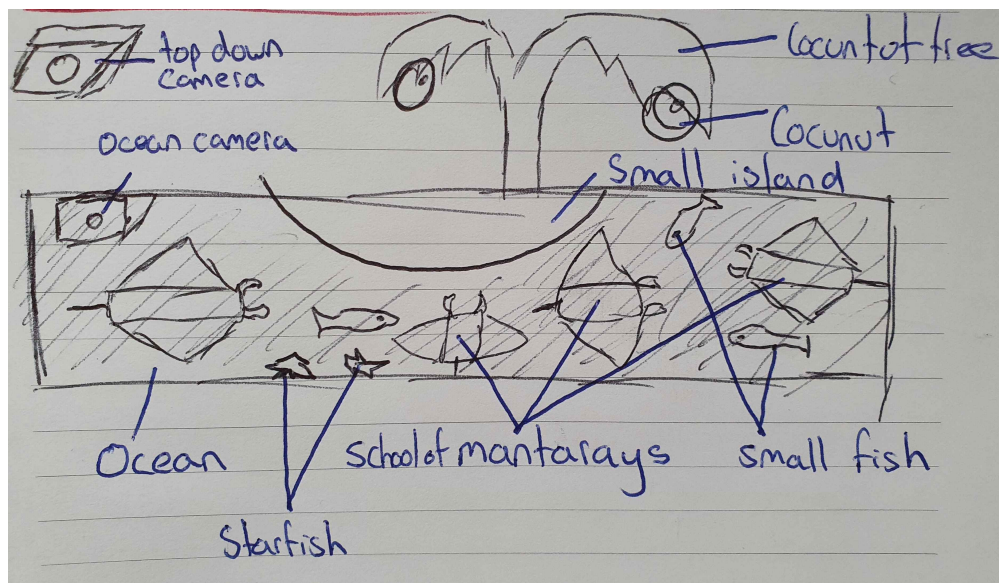 top down
camera
Cocuntot tree
Cocunut
Ocean camera
Small island
Ocean
School of mantarays
small fish
Starfish